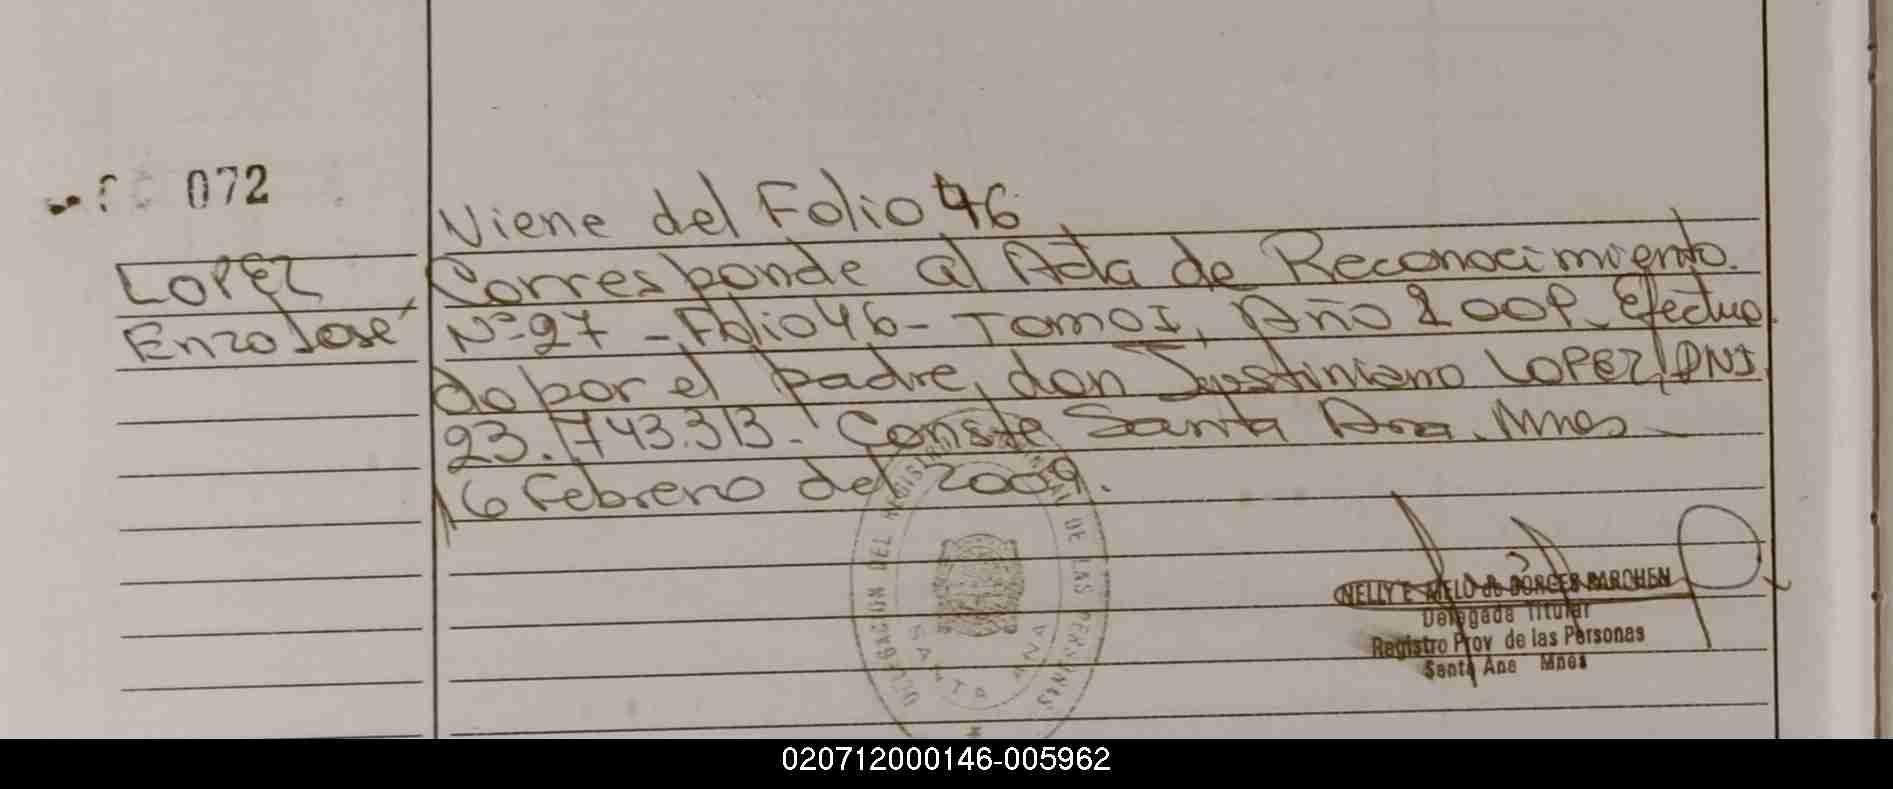 072
Viene del Folio 46
LOPEZ
Enzo José
Corresponde al Acta de Reconocimiento.
Nº 27 - Folio 46 - Tomo I, Año 2009. Efectua
do por el padre, don Justiniano LOPEZ, DNI
23.743.313. Conste Santa Ana. Mnes
16 Febrero del 2009.
DELEGACION DEL REGISTRO PROVINCIAL DE LAS PERSONAS
SANTA ANA
NELLY E. MELO de BORGES PARCHEN
Delegada Titular
Registro Prov de las Personas
Santa Ana Mnes
020712000146-005962